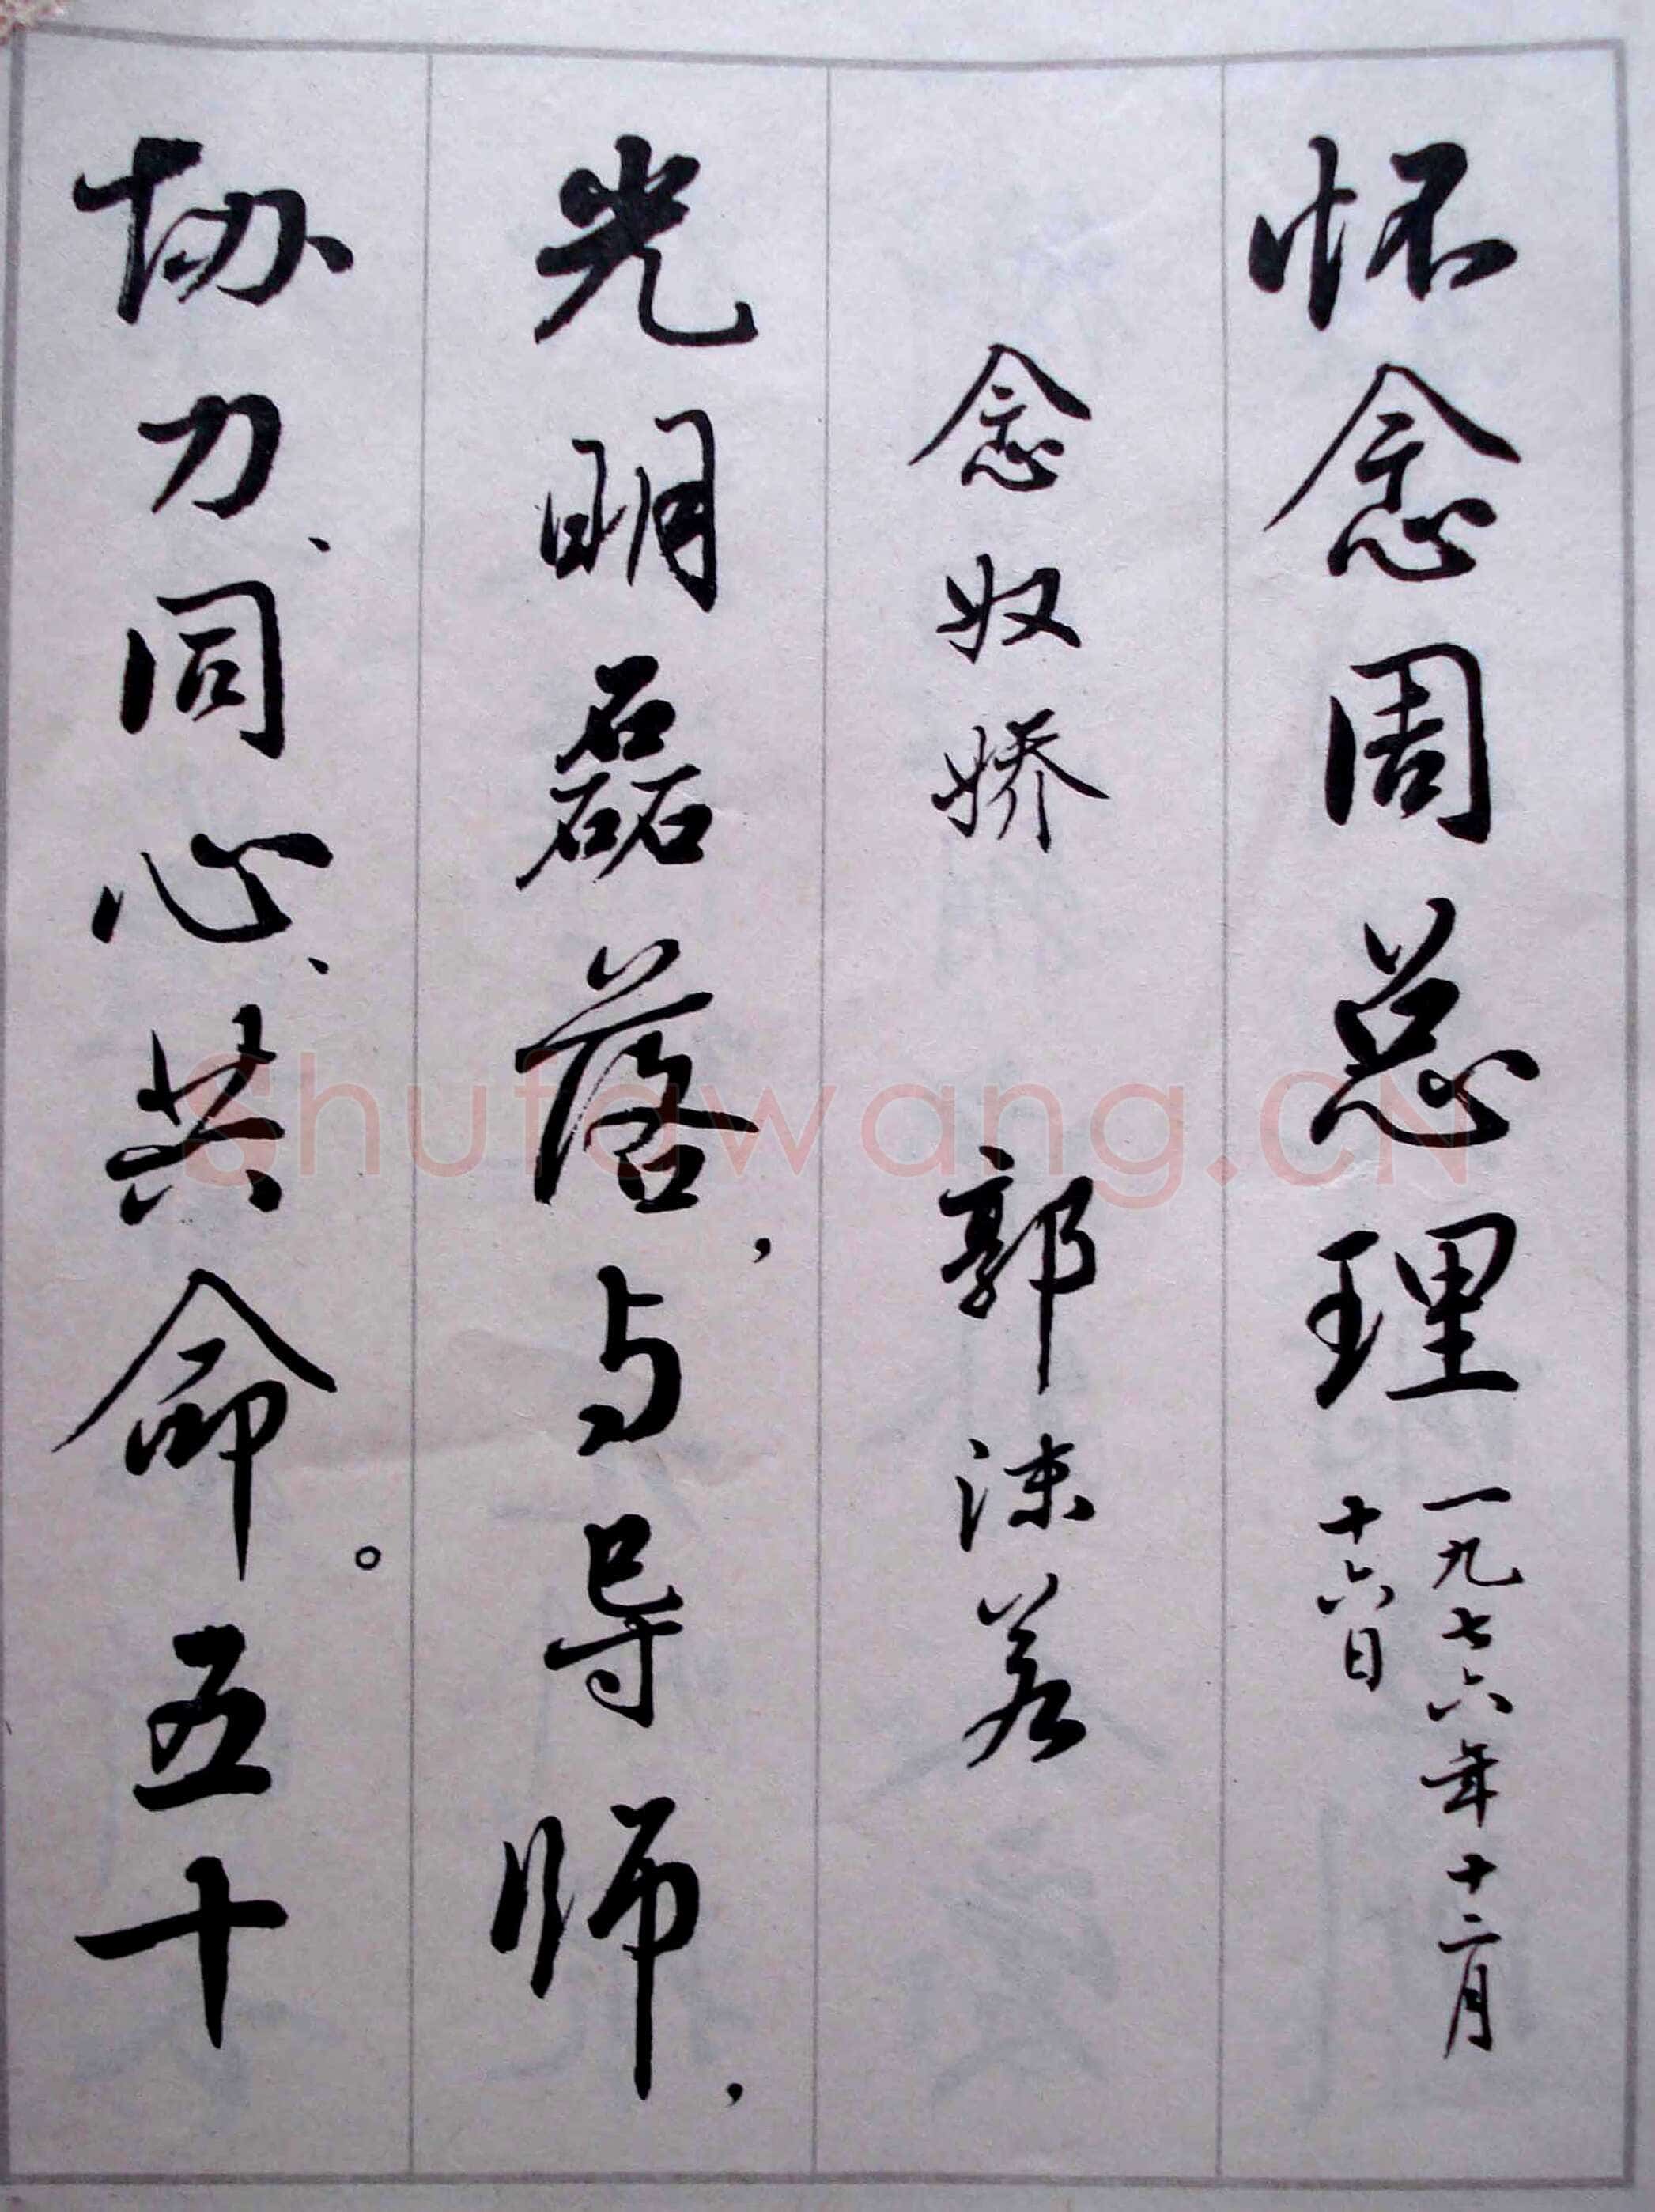 怀念周总理
一九七六年十二月
十六日
念奴娇 郭沫若
光明磊落，与导师，
协力、同心、共命。五十
Shufawang.CN